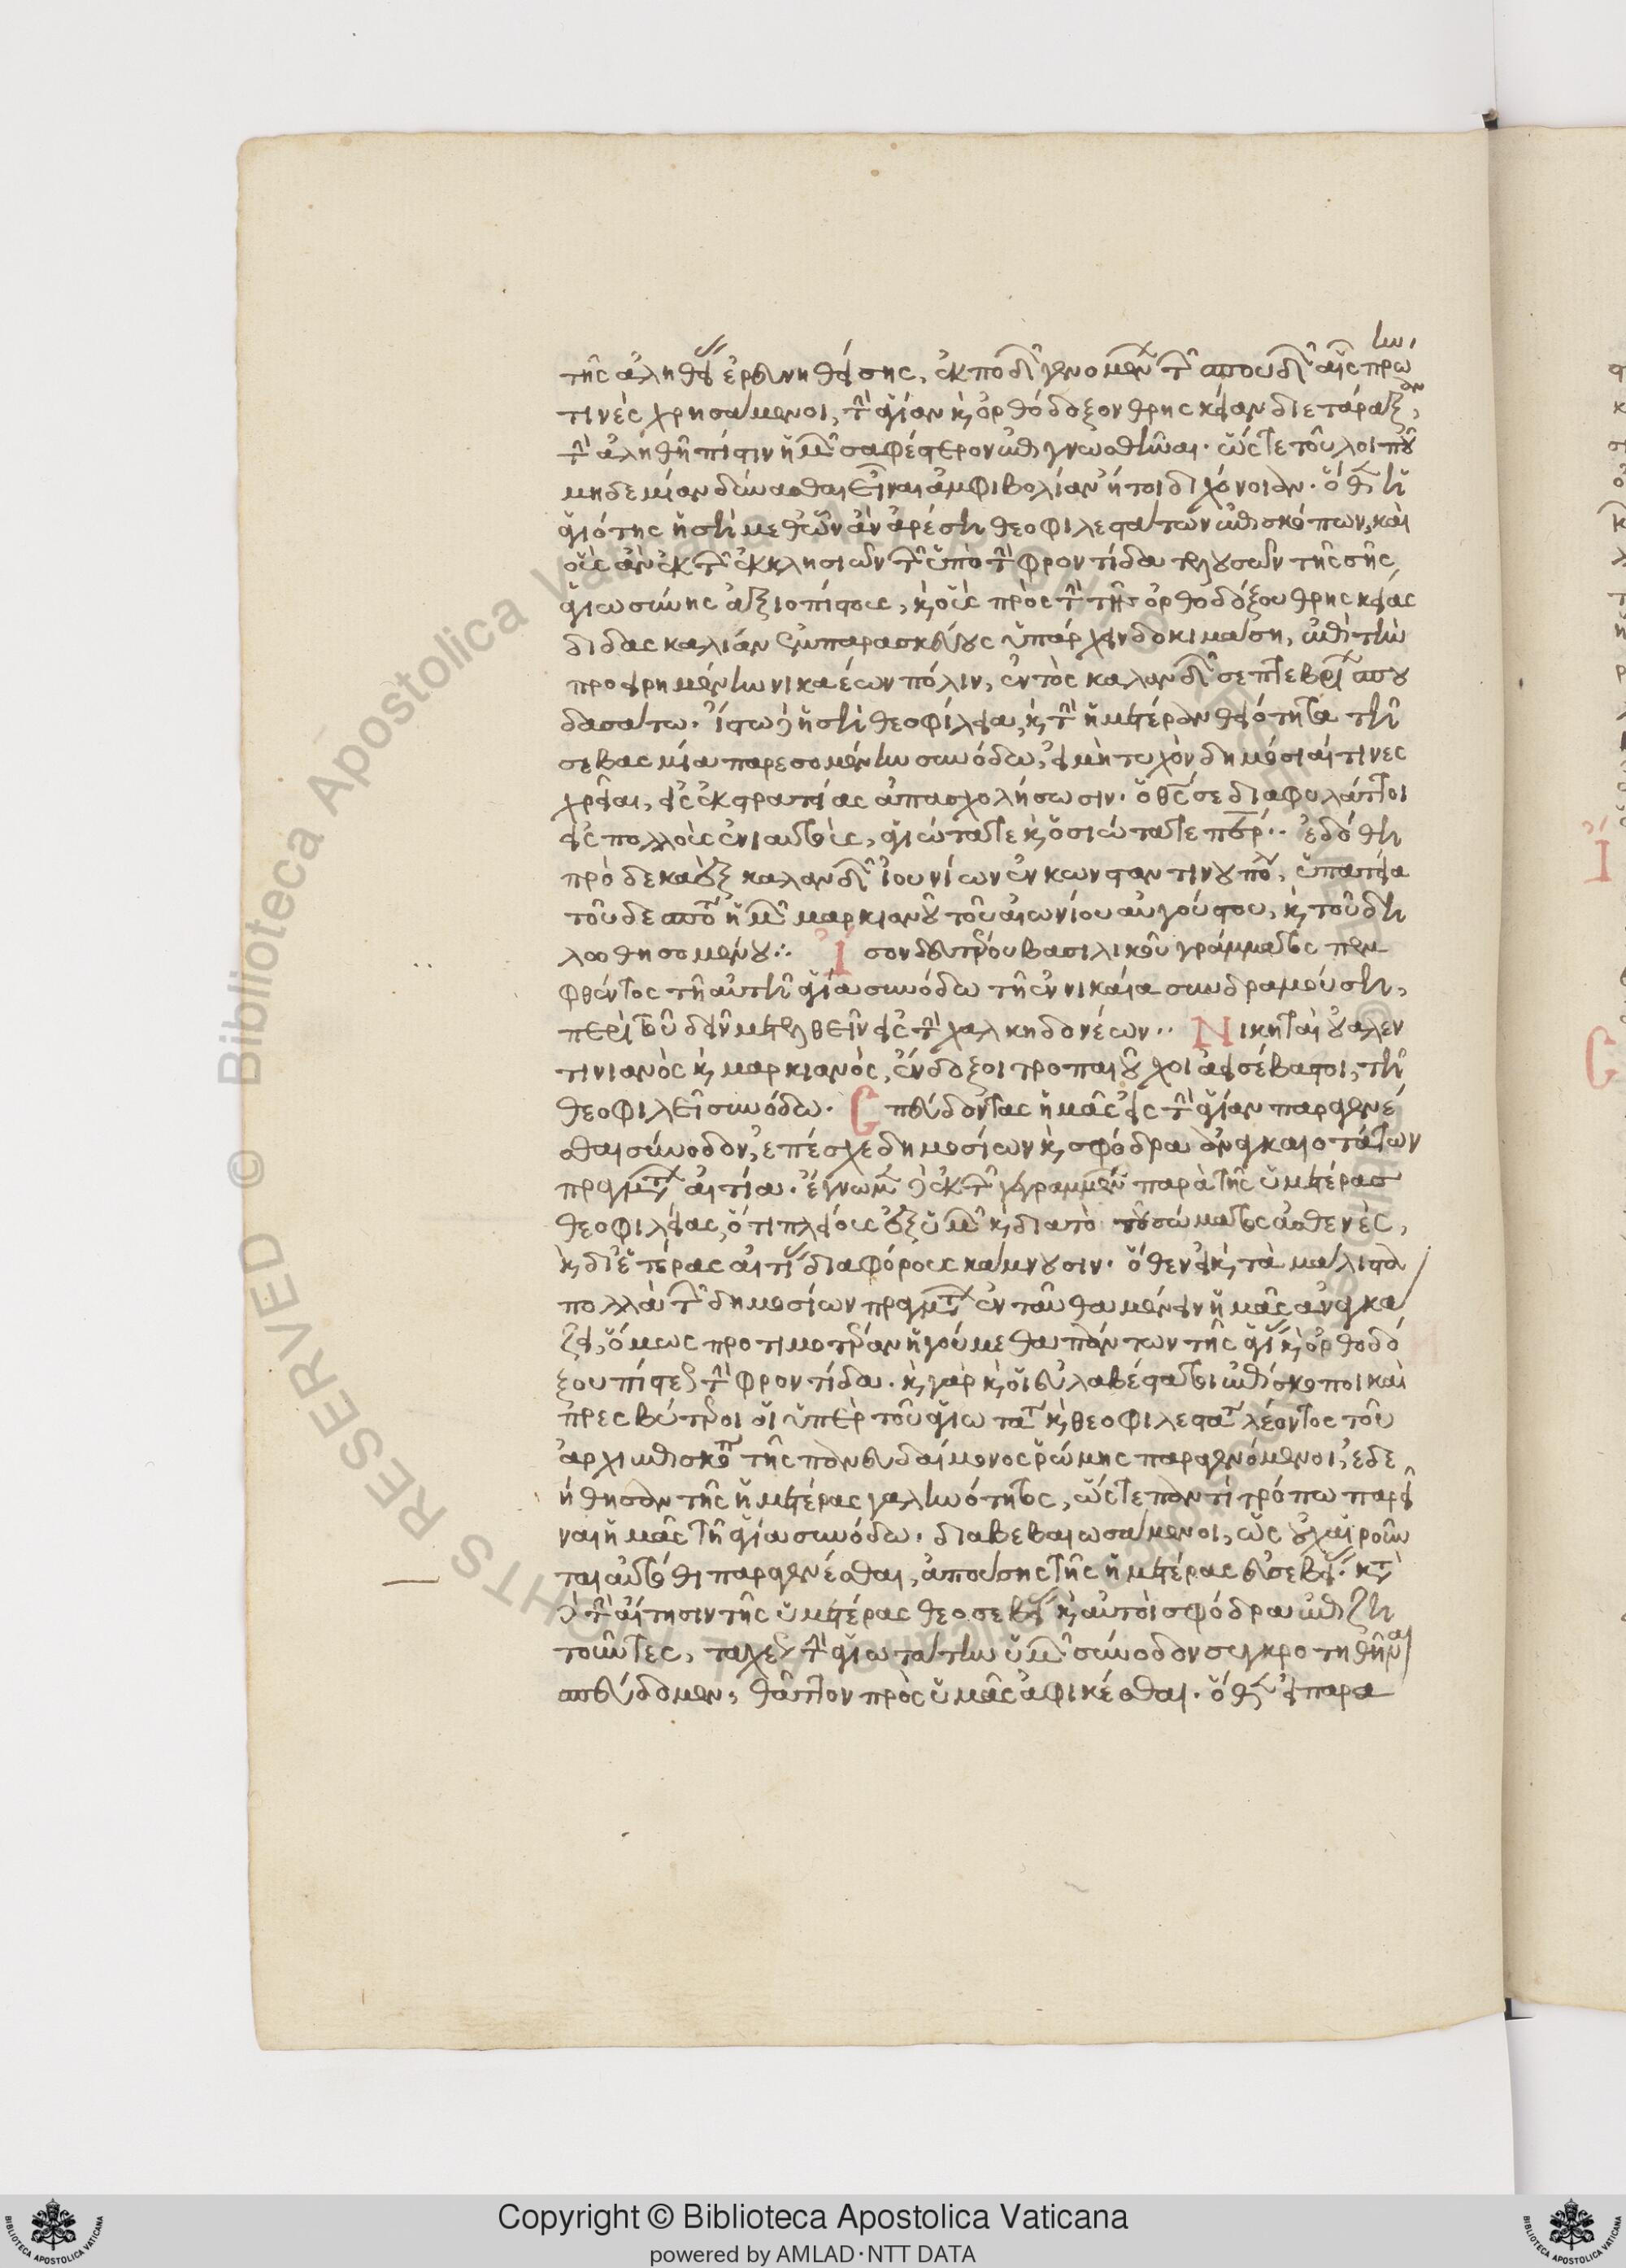 τῆς ἀληθείας ἐρευνηθείσης, ἐκποδὼν γενομένων τῶν σπουδῶν αἷς πρώην
τινὲς χρησάμενοι, τὴν ἁγίαν κ, ὀρθόδοξον θρησκείαν διετάραξαν,
τὴν ἀληθῆ πίστιν ἡμῶν σαφέστερον ἐπιγνωσθῆναι. ὥστε τοῦ λοιποῦ
μηδεμίαν δύνασθαι εἶναι ἀμφιβολίαν ἤτοι διχόνοιαν. ὅθεν ἡ
ἁγιότης ἡ σὴ μεθ' ὧν ἂν ἀρέση θεοφιλεστάτων ἐπισκόπων, καὶ
οὓς ἂν ἐκ τῶν ἐκκλησιῶν τῶν ὑπὸ τὴν φροντίδα τελουσῶν τῆς σῆς
ἁγιωσύνης ἀξιοπίστους, κ, οὓς πρὸς τὴν τῆς ὀρθοδόξου θρησκείας
διδασκαλίαν εὐπαρασκεύους ὑπάρχειν δοκιμάση, ἐπὶ τὴν
προειρημένην νικαέων πόλιν, ἐντὸς καλανδῶν σεπτεβρίων σπου
δασάτω. ἴστω δὲ ἡ σὴ θεοφίλεια, κ, τὴν ἡμετέραν θειότητα τῆ
σεβασμία παρεσομένην συνόδω, εἰ μὴ τυχὸν δημόσιαί τινες
χρεῖαι, εἰς ἐκστρατείας ἀπασχολήσωσιν. ὁ θεός σε διαφυλάττοι
εἰς πολλοὺς ἐνιαυτοὺς, ἁγιώτατε κ, ὁσιώτατε πάτερ.. ἐδόθη
πρὸ δεκαὲξ καλανδῶν ἰουνίων ἐν κωνσταντινουπόλει, ὑπατεία
τοῦ δεσπότου ἡμῶν μαρκιανοῦ τοῦ αἰωνίου αὐγούστου, κ, τοῦ δη
λωθησομένου:. Ἴσον δευτέρου βασιλικοῦ γράμματος πεμ
φθέντος τῆ αὐτῆ ἁγία συνόδω τῆ ἐν νικαία συνδραμούση,
περὶ τοῦ δεῖν μετελθεῖν εἰς τὴν χαλκηδονέων.. Νικηταὶ οὐαλεν
τινιανὸς κ, μαρκιανὸς, ἔνδοξοι τροπαιοῦχοι ἀεισέβαστοι, τῆ
θεοφιλεῖ συνόδω. Σπεύδοντας ἡμᾶς εἰς τὴν ἁγίαν παραγενέ
σθαι σύνοδον, ἐπέσχε δημοσίων κ, σφόδρα ἀναγκαιοτάτων
πραγμάτων αἰτία. ἔγνωμεν δὲ ἐκ τῶν γεγραμμένων παρὰ τῆς ὑμετέρας
θεοφιλείας, ὅτι πλείους ἐξ ὑμῶν κ, διὰ τὸ τοῦ σώματος ἀσθενὲς,
κ, δι' ἑτέρας αἰτίας διαφόρους κάμνουσιν. ὅθεν εἰ κ, τὰ μάλιστα
πολλὰ τῶν δημοσίων πραγμάτων ἐνταῦθα μένειν ἡμᾶς ἀναγκά
ζει, ὅμως προτιμοτέραν ἡγούμεθα πάντων τῆς ἁγίας κ, ὀρθοδό
ξου πίστεως τὴν φροντίδα. κ, γὰρ κ, οἱ εὐλαβέστατοι ἐπίσκοποι καὶ
πρεσβύτεροι οἱ ὑπὲρ τοῦ ἁγιωτάτου κ, θεοφιλεστάτου λέοντος τοῦ
ἀρχιεπισκόπου τῆς πανευδαίμονος ῥώμης παραγενόμενοι, ἐδε
ήθησαν τῆς ἡμετέρας γαληνότητος, ὥστε παντὶ τρόπω παρεῖ
ναι ἡμᾶς τῆ ἁγία συνόδω. διαβεβαιωσάμενοι, ὡς οὐχ αἱροῦν
ται αὐτόθι παραγενέσθαι, ἀπούσης τῆς ἡμετέρας εὐσεβείας. κατὰ
δὲ τὴν αἴτησιν τῆς ὑμετέρας θεοσεβείας κ, αὐτοὶ σφόδρα ἐπιζη
τοῦντες, ταχέως τὴν ἁγιωτάτην ὑμῶν σύνοδον συγκροτηθῆναι
σπεύδομεν, θᾶττον πρὸς ὑμᾶς ἀφικέσθαι. ὅθεν εἰ παρα
Copyright © Biblioteca Apostolica Vaticana
powered by AMLAD·NTT DATA